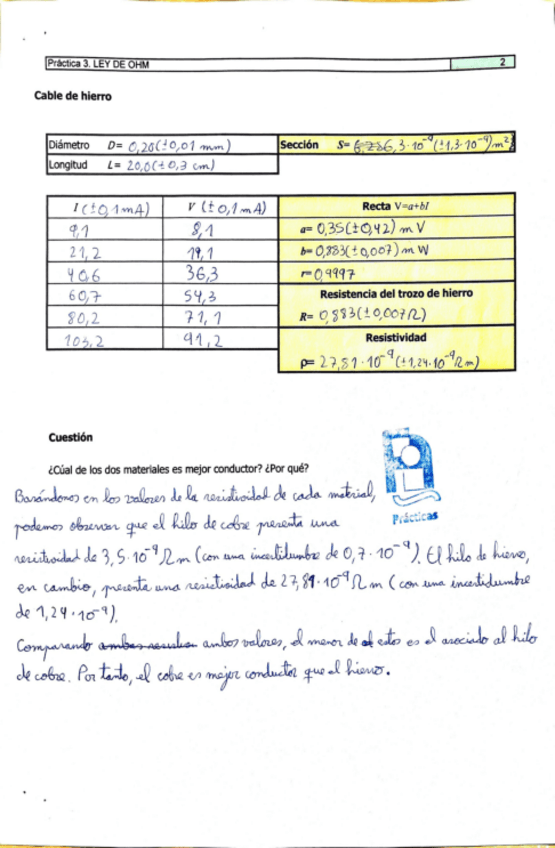 Práctica 3. LEY DE OHM 2
Cable de hierro
Diámetro D= 0,20(±0,01 mm) Sección S= 6,3·10⁻⁹(±1,3·10⁻⁹)m²)
Longitud L= 20,0(±0,3 cm)
I (±0,1mA) V (±0,1mA) Recta V=a+bI
9,1 8,1 a= 0,35(±0,42) m V
21,2 19,1 b= 0,883(±0,007) m W
40,6 36,3 r=0,9997
60,7 54,3 Resistencia del trozo de hierro
80,2 71,1 R= 0,883(±0,007Ω)
103,2 91,2 Resistividad
ρ= 27,81·10⁻⁹(±1,24·10⁻⁹Ωm)
Cuestión
¿Cúal de los dos materiales es mejor conductor? ¿Por qué?
Prácticas
Basándonos en los valores de la resistividad de cada material,
podemos observar que el hilo de cobre presenta una
resistividad de 3,5·10⁻⁹Ωm (con una incertidumbre de 0,7·10⁻⁹). El hilo de hierro,
en cambio, presenta una resistividad de 27,81·10⁻⁹Ωm (con una incertidumbre
de 1,24·10⁻⁹).
Comparando ambos valores, el menor de estos es el asociado al hilo
de cobre. Por tanto, el cobre es mejor conductor que el hierro.